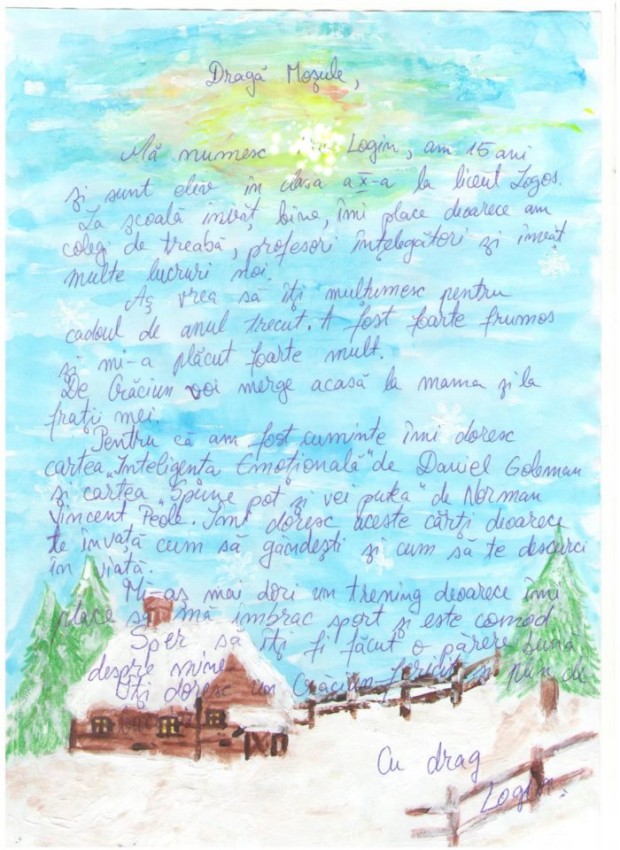 Dragă Moșule,
Mă numesc Login, am 15 ani
și sunt elev în clasa a X-a la liceul Logos.
La școală învăț bine, îmi place deoarece am
colegi de treabă, profesori înțelegători și învăț
multe lucruri noi.
Aș vrea să îți mulțumesc pentru
cadoul de anul trecut. A fost foarte frumos
și mi-a plăcut foarte mult.
De Crăciun voi merge acasă la mama și la
frații mei.
Pentru că am fost cuminte îmi doresc
cartea „Inteligența Emoțională" de Daniel Goleman
și cartea „Spune pot și vei putea" de Norman
Vincent Peale. Îmi doresc aceste cărți deoarece
te învață cum să gândești și cum să te descurci
în viață.
Mi-aș mai dori un trening deoarece îmi
place să mă îmbrac sport și este comod
Sper să îți fi făcut o părere bună
despre mine
Îți doresc un Crăciun fericit și plin de
Cu drag
Login.